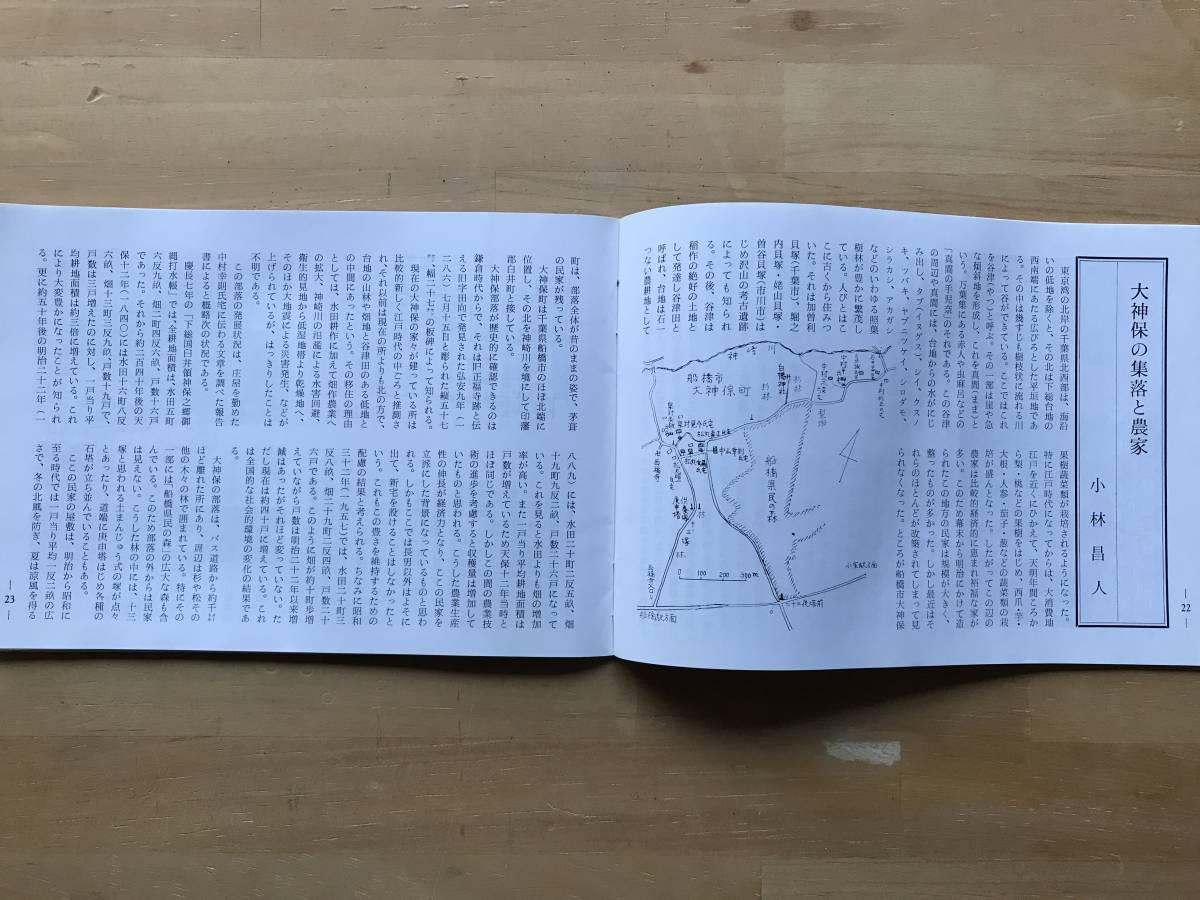 大神保の集落と農家
小林昌人
東京湾の北岸の千葉県北西部は、海沿
いの低地を除くと、その北は下総台地の
西南端にあたる広びろとした平垣地であ
る。その中を幾すじも樹枝状に流れる川
によって谷ができている。ここではこれ
を谷津(やつ)と呼ぶ。その一部は崖や急
な傾斜地を形成し、これを真間(まま)と
いう。万葉集にある赤人や虫麻呂などの
「真間の手児奈」のそれである。この谷津
の周辺や真間には、台地からの水がにじ
み出し、タブ(イヌグス)、シイ、クスノ
キ、ツバキ、ヤブニッケイ、シロダモ、
シラカシ、アカガシ
などのいわゆる照葉
樹林が豊かに繁茂し
ている。人びとはこ
こに古くから住みつ
いた。それは加曽利
貝塚(千葉市)、堀之
内貝塚・姥山貝塚・
曽谷貝塚(市川市)は
じめ沢山の考古遺跡
によっても知られ
る。その後、谷津は
稲作の絶好の土地と
して発達し谷津田と
呼ばれ、台地は石一
つない農耕地として
果樹蔬菜類が栽培されるようになった。
特に江戸時代になってからは、大消費地
江戸を近くにひかえて、天明年間ころか
ら梨・桃などの果樹をはじめ、西瓜・芋・
大根・人参・茄子・葱などの蔬菜類の栽
培が盛んとなった。したがってこの辺の
農家は比較的経済的に恵まれ裕福な家が
多い。このため幕末から明治にかけて造
られたこの地方の民家は規模が大きく、
整ったものが多かった。しかし最近はそ
れらのほとんどが改築されてしまって見
られなくなった。ところが船橋市大神保
神崎川
船橋市
大神保町
船橋県民の森
白幡神社
0 100 200 300m
小室駅方面
船橋駅方面
— 22 —
町は、部落全体が昔のままの姿で、茅葺
の民家が残っている。
大神保町は千葉県船橋市のほぼ北端に
位置し、その北を神崎川を境にして印旛
郡白井町と接している。
大神保部落が歴史的に確認できるのは
鎌倉時代からで、それは旧正福寺跡と伝
える旧字田向で発見された弘安九年(一
二八六)七月十五日と彫られた縦五十七
㌢、幅二十七㌢の板碑によって知られる。
現在の大神保の家々が建っている所は
比較的新しく江戸時代の中ごろと推測さ
れ、それ以前は現在の所よりも北の方で、
台地の山林や畑地と谷津田のある低地と
の中間にあったという。その移住の理由
としては、水田耕作に加えて畑作農業へ
の拡大、神崎川の氾濫による水害回避、
衛生的見地から低湿地帯より乾燥地へ、
そのほか大地震による災害発生、などが
上げられているが、はっきりしたことは
不明である。
この部落の発展状況は、庄屋を勤めた
中村幸則氏宅に伝わる文章を調べた報告
書によると概略次の状況である。
慶長七年の「下総国臼井領神保之郷御
縄打水帳」では、全耕地面積は、水田五町
六反九畝、畑二町四反六畝、戸数十六戸
であった。それから約二百四十年後の天
保十二年(一八四〇)には水田十六町八反
六畝、畑十三町三反九畝、戸数十九戸で、
戸数は三戸増えたのに対し、一戸当り平
均耕地面積は約三倍に増えている。これ
により大変豊かになったことが知られ
る。更に約五十年後の明治二十二年(一
八八九)には、水田二十町二反五畝、畑
十九町九反二畝、戸数二十六戸になって
いる。これを見ると水田よりも畑の増加
率が高い。また一戸当り平均耕地面積は
戸数が増えているため天保十二年当時と
ほぼ同じである。しかしこの間の農業技
術の進歩を考慮すると収穫量は増加して
いたものと思われる。こうした農業生産
性の伸長が経済力となって、ここの民家を
立派にした背景になっているものと思わ
れる。しかもここでは長男以外はよそに
出て、新宅を設けることはしなかったと
いう。これもこの豊さを維持するための
配慮の結果と考えられる。ちなみに昭和
三十二年(一九五七)では、水田二十町三
反八畝、畑二十九町二反四畝、戸数二十
六戸である。このように畑が約十町歩増
えていながら戸数は明治二十二年以来増
減はあったがそれほど変っていない。た
だし現在は約四十戸に増えている。これ
は全国的な社会的環境の変化の結果であ
る。
大神保の部落は、バス道路から約千㍍
ほど離れた所にあり、周辺は杉や松その
他の木々の林で囲まれている。特にその
一部には「船橋県民の森」の広大な森も含
んでいる。このため部落の外からは民家
は見えない。こうした林の中には、十三
塚と思われる土まんじゅう式の塚が点々
とあったり、道端に庚申塔はじめ各種の
石塔が立ち並んでいることもある。
ここの民家の屋敷は、明治から昭和に
至る時代では一戸当り平均一反二畝の広
さで、冬の北風を防ぎ、夏は涼風を得る
— 23 —